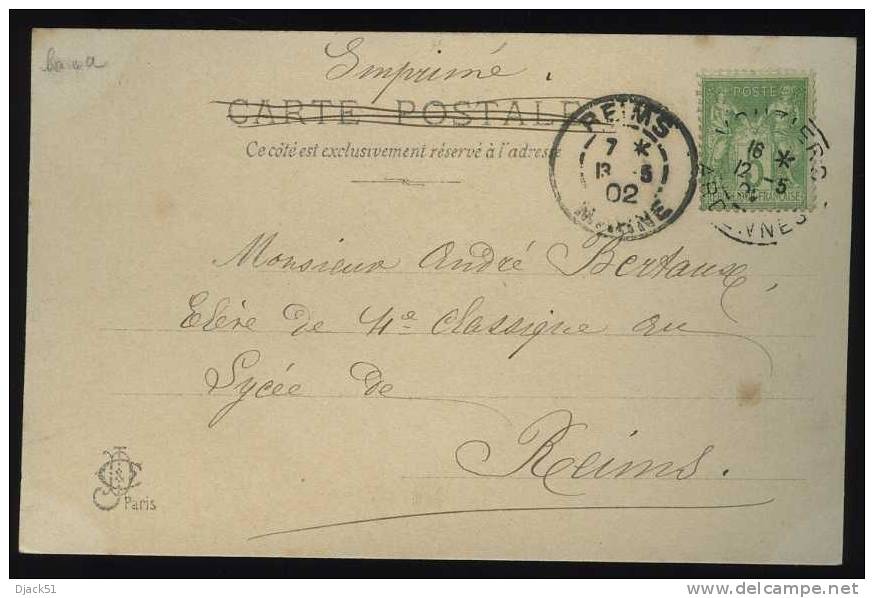 Imprimé.
CARTE POSTALE
Ce côté est exclusivement réservé à l'adresse
REIMS
7 *
13 -5
02
MARNE
POSTE
VOUZIERS
16 *
12 -5
02
ARDENNES
Monsieur André Bertaux,
Elève de 4e classique au
Lycée de
Reims.
Paris
Djack51
delcampe.net